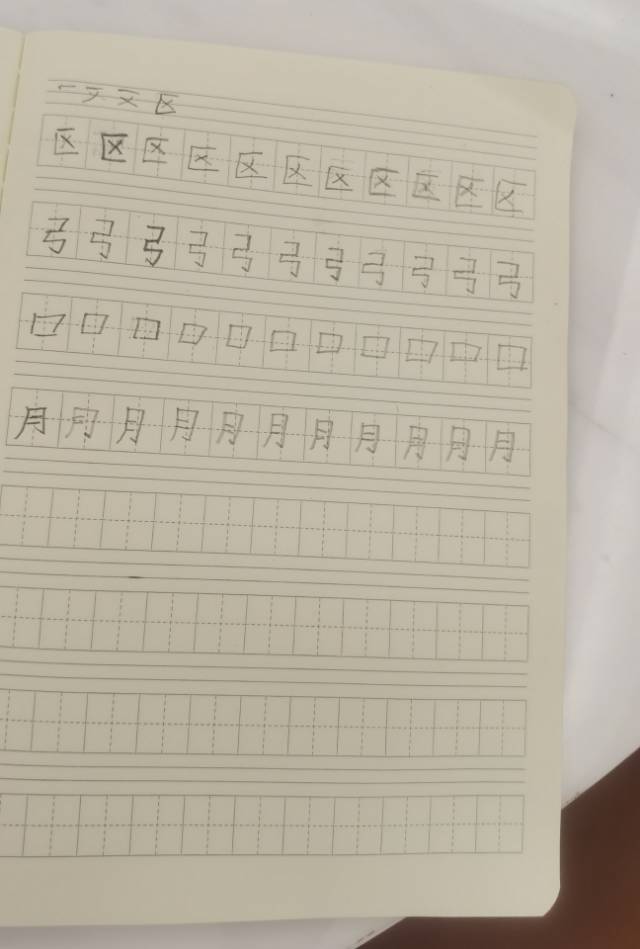 区
区区区区区区区区区区区
弓弓弓弓弓弓弓弓弓弓弓
口口口口口口口口口口口
月月月月月月月月月月月